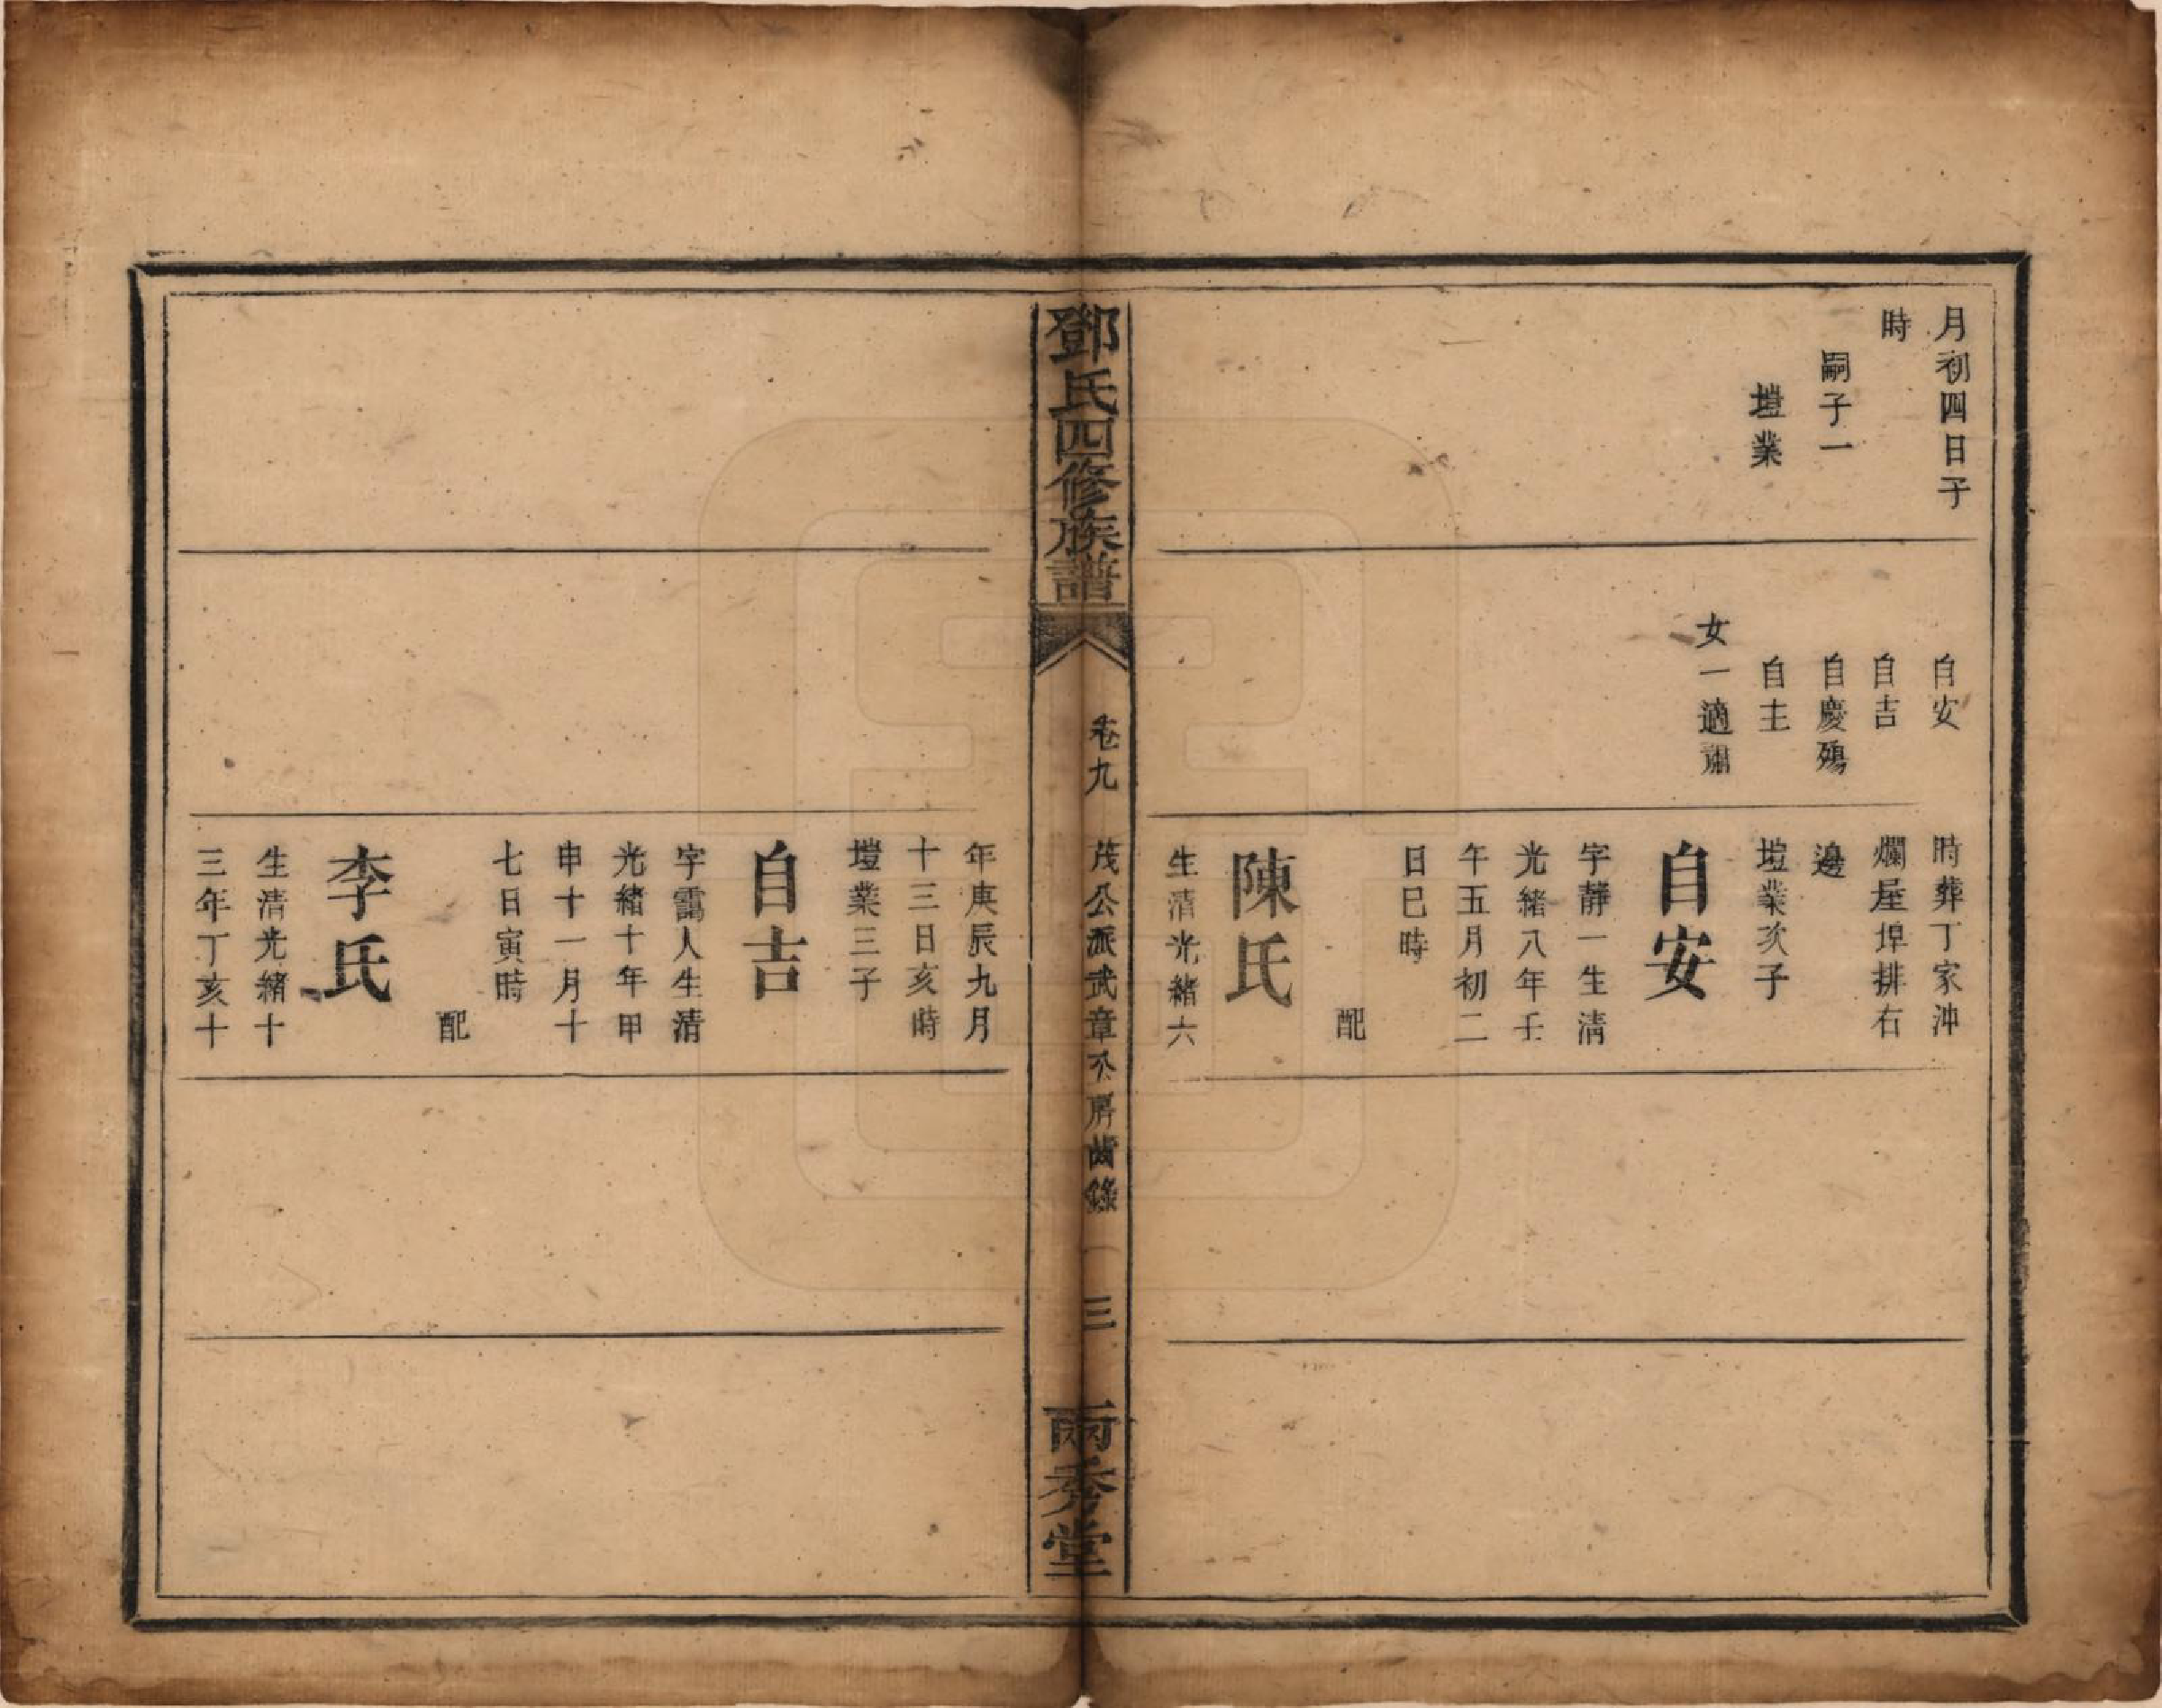 月初四日子
時
嗣子一
塏業
自安
自吉
自慶殤
自主
女一適
時葬丁家沖
爛屋埠排右
邊
塏業次子
自安
字靜一生清
光緒八年壬
午五月初二
日巳時
配
陳氏
生清光緒六
鄧氏四修族譜
卷九
茂公派武章公房齒錄
三
兩秀堂
年庚辰九月
十三日亥時
塏業三子
自吉
字靄人生清
光緒十年甲
申十一月十
七日寅時
配
李氏
生清光緒十
三年丁亥十